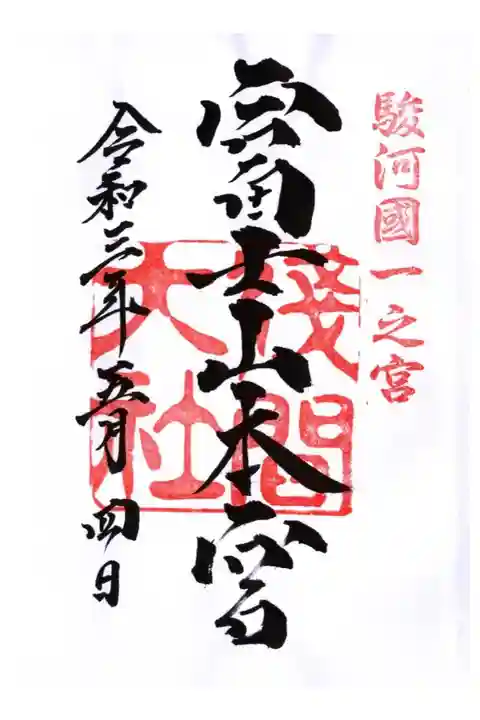 駿河國一之宮
富士山本宮
淺間大社
令和三年五月四日